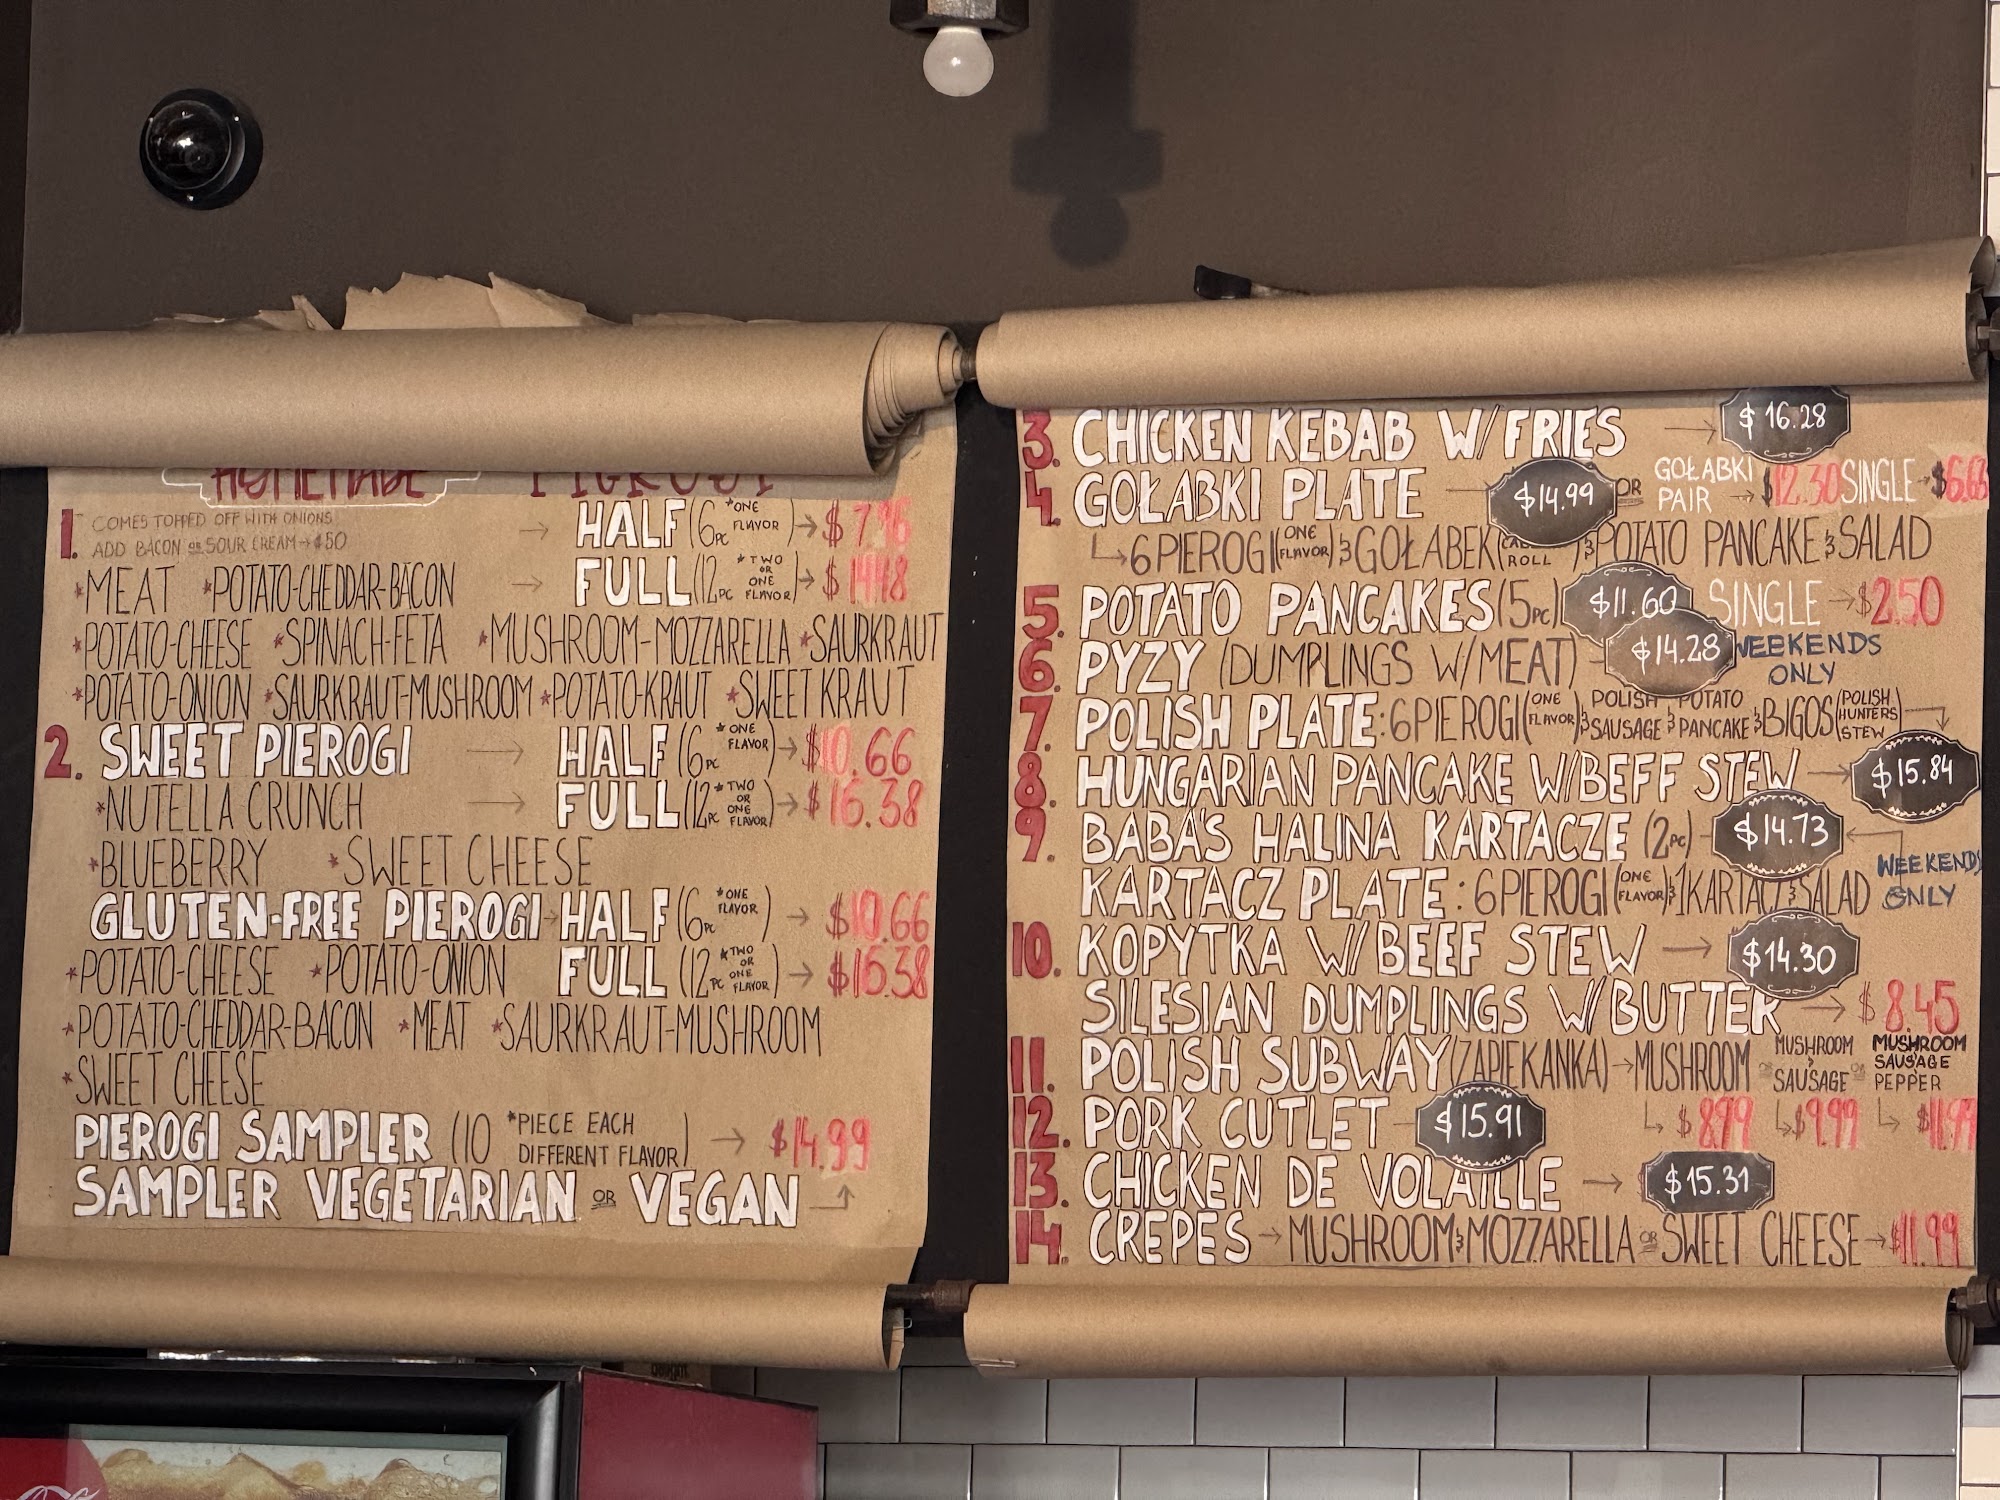 HOMEMADE PIEROGI
1. COMES TOPPED OFF WITH ONIONS
ADD BACON OR SOUR CREAM → $50
→ HALF (6PC *ONE FLAVOR) → $7.96
*MEAT *POTATO-CHEDDAR-BACON → FULL (12PC *TWO OR ONE FLAVOR) → $14.48
*POTATO-CHEESE *SPINACH-FETA *MUSHROOM-MOZZARELLA *SAURKRAUT
*POTATO-ONION *SAURKRAUT-MUSHROOM *POTATO-KRAUT *SWEET KRAUT
2. SWEET PIEROGI → HALF (6PC *ONE FLAVOR) → $10.66
*NUTELLA CRUNCH → FULL (12PC *TWO OR ONE FLAVOR) → $16.38
*BLUEBERRY *SWEET CHEESE
GLUTEN-FREE PIEROGI → HALF (6PC *ONE FLAVOR) → $10.66
*POTATO-CHEESE *POTATO-ONION FULL (12PC *TWO OR ONE FLAVOR) → $16.38
*POTATO-CHEDDAR-BACON *MEAT *SAURKRAUT-MUSHROOM
*SWEET CHEESE
PIEROGI SAMPLER (10 *PIECE EACH DIFFERENT FLAVOR) → $14.99
SAMPLER VEGETARIAN OR VEGAN
3. CHICKEN KEBAB W/FRIES → $16.28
4. GOŁABKI PLATE $14.99 OR GOŁABKI PAIR → $12.30 SINGLE → $6.63
6 PIEROGI (ONE FLAVOR) & GOŁABEK ( ROLL ) & POTATO PANCAKE & SALAD
5. POTATO PANCAKES (5PC) $11.60 SINGLE → $2.50
6. PYZY (DUMPLINGS W/MEAT) $14.28 WEEKENDS ONLY
7. POLISH PLATE: 6 PIEROGI (ONE FLAVOR) & POLISH SAUSAGE & POTATO PANCAKE & BIGOS (POLISH HUNTERS STEW)
8. HUNGARIAN PANCAKE W/BEFF STEW → $15.84
9. BABA'S HALINA KARTACZE (2PC) $14.73
KARTACZ PLATE: 6 PIEROGI (ONE FLAVOR) & 1 KARTACZ & SALAD WEEKENDS ONLY
10. KOPYTKA W/BEEF STEW → $14.30
SILESIAN DUMPLINGS W/BUTTER → $8.45
11. POLISH SUBWAY (ZAPIEKANKA) → MUSHROOM OR MUSHROOM & SAUSAGE OR MUSHROOM SAUSAGE PEPPER
12. PORK CUTLET $15.91 $8.99 $9.99 $11.99
13. CHICKEN DE VOLAILLE → $15.31
14. CREPES → MUSHROOM & MOZZARELLA OR SWEET CHEESE → $11.99